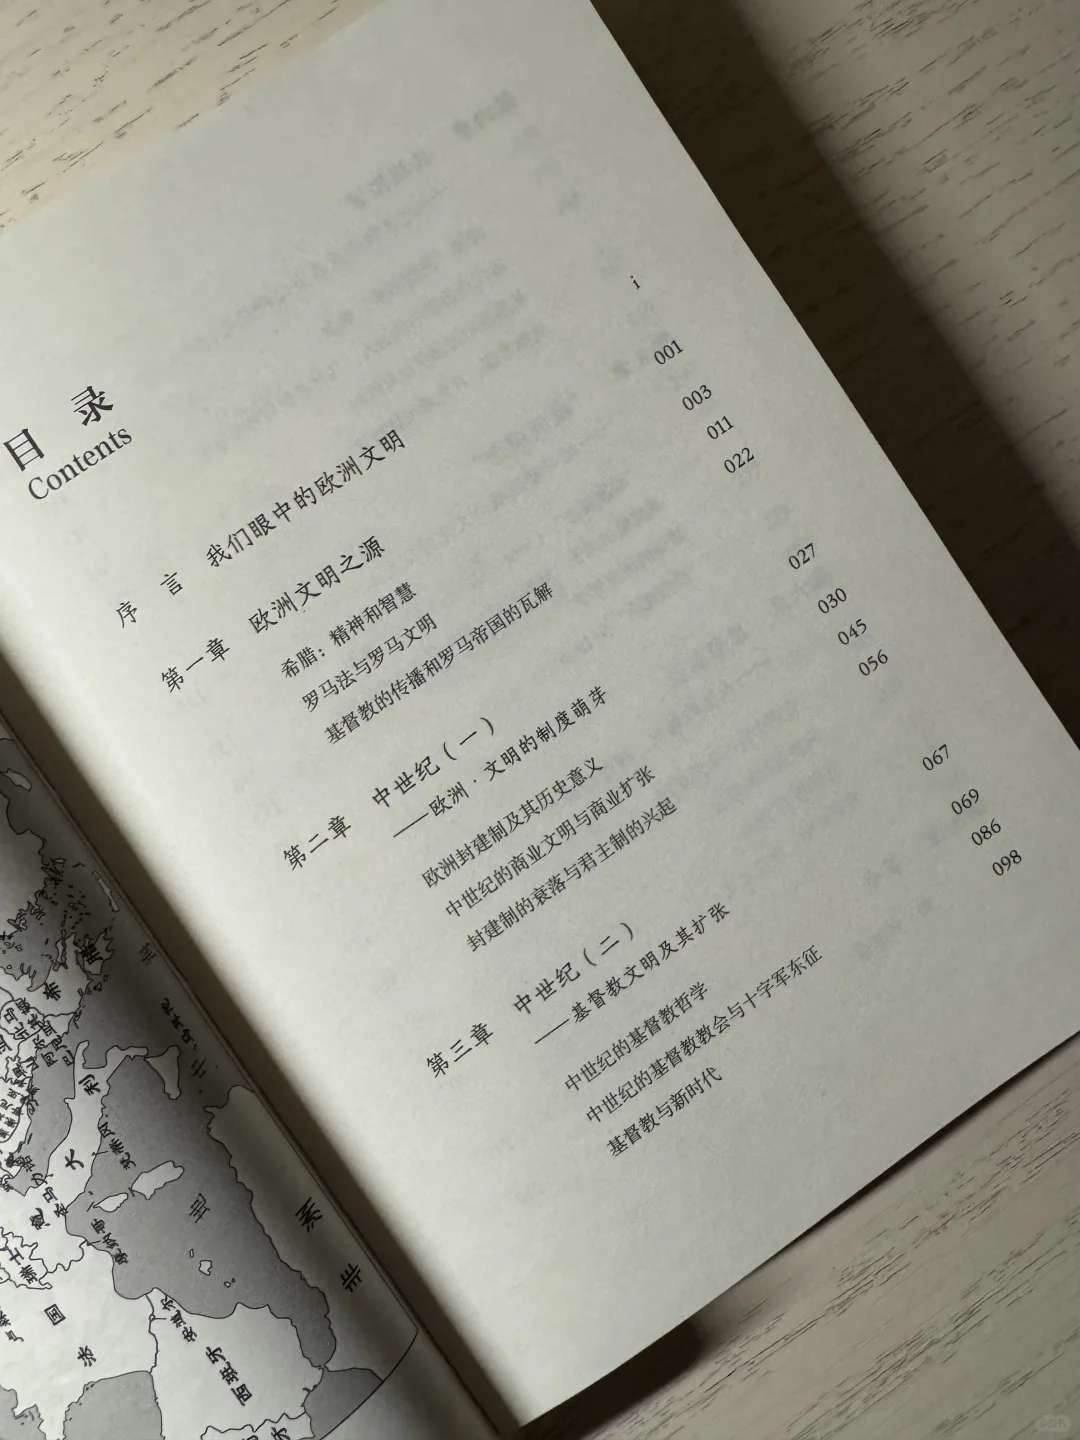 目 录
Contents
序 言 我们眼中的欧洲文明 i
第一章 欧洲文明之源 001
希腊：精神和智慧 003
罗马法与罗马文明 011
基督教的传播和罗马帝国的瓦解 022
第二章 中世纪（一） 027
——欧洲·文明的制度萌芽
欧洲封建制及其历史意义 030
中世纪的商业文明与商业扩张 045
封建制的衰落与君主制的兴起 056
第三章 中世纪（二） 067
——基督教文明及其扩张
中世纪的基督教哲学 069
中世纪的基督教教会与十字军东征 086
基督教与新时代 098
希腊
意大利
马耳他
梵蒂冈
圣马力诺
摩纳哥
瑞士
法国
安道尔
西班牙
地
非洲